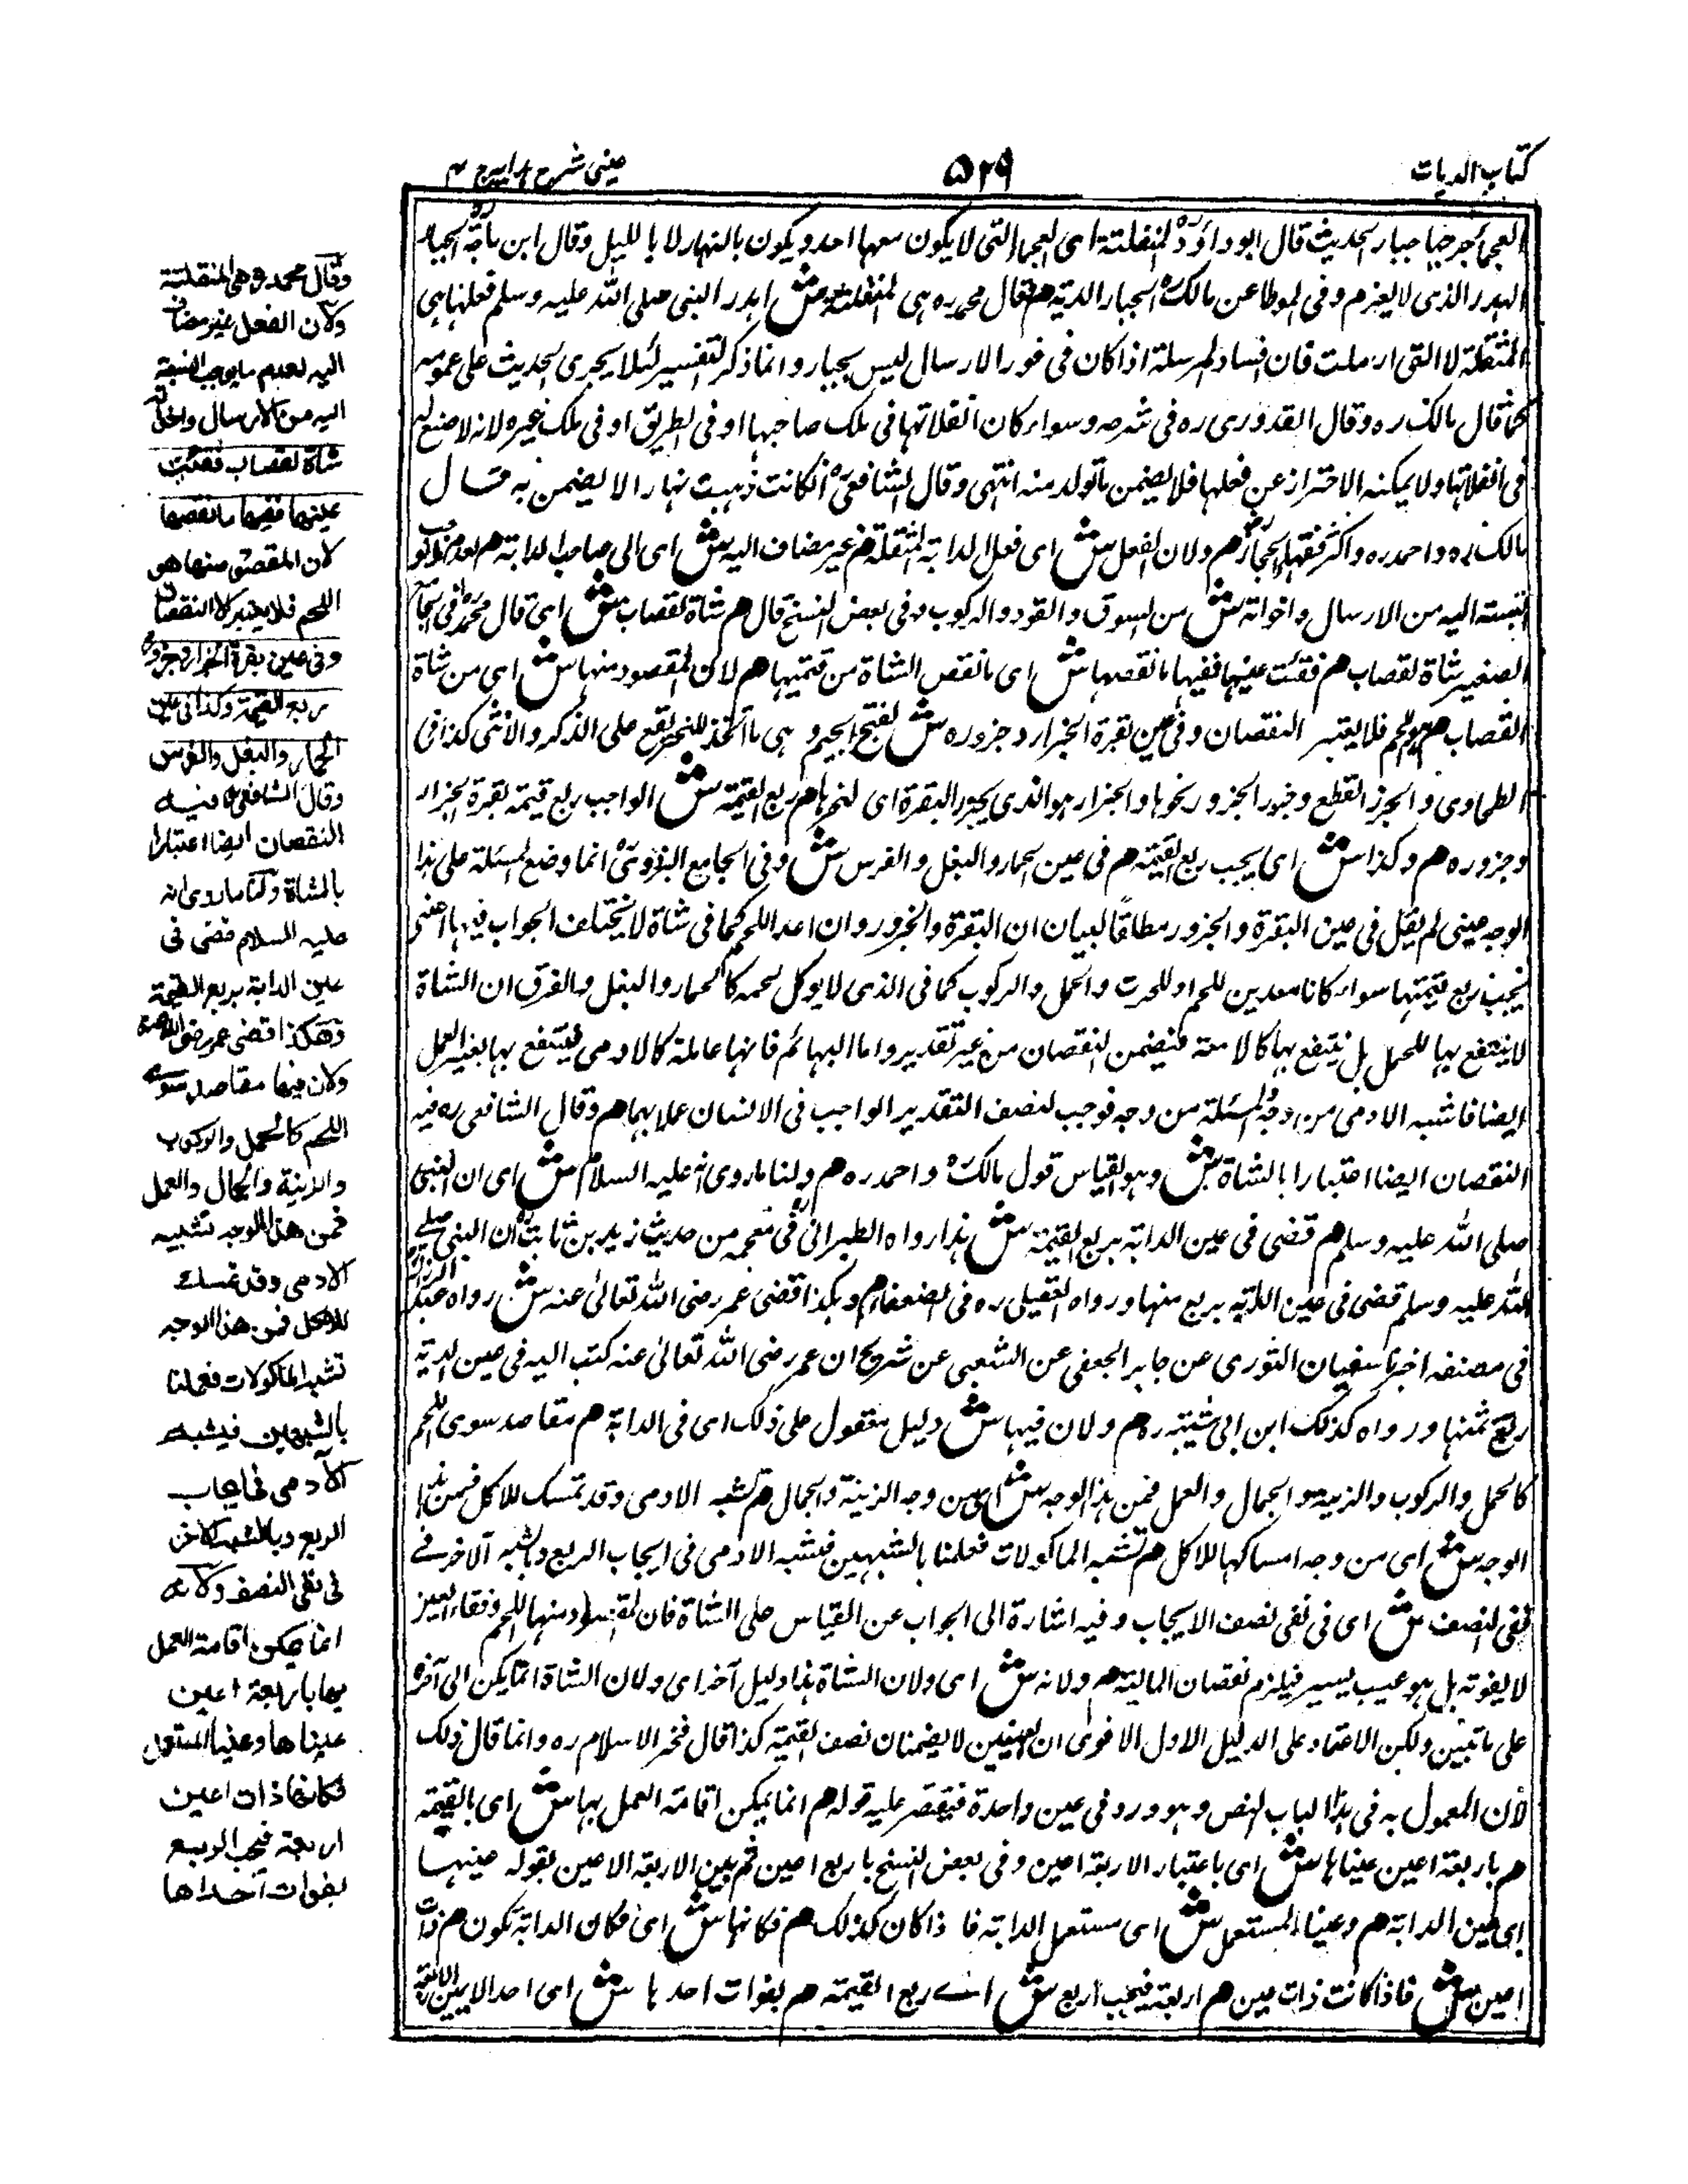 كتاب الديات
٥٢٩
عينى شرح هدايه ج ٤
العجماء جرحها جبار الحديث قال ابو داؤد المنفلتة اى العجماء التى لا يكون معها احد ويكون بالنهار لا بالليل وقال ابن ماجة الجبار
الهدر الذى لا يغرم وفى الموطا عن مالك الجبار الدية هم قال محمد ره هى المنفلتة ش اهدر النبى صلى الله عليه وسلم فعلها هى
المنفلتة لا التى ارسلت فان افساد المرسلة اذا كان فى فور الارسال ليس بجبار وانما ذكر التفسير لئلا يجرى الحديث على عمومه
كما قال مالك ره وقال القدورى ره فى شرحه وسواء كان انفلاتها فى ملك صاحبها او فى الطريق او فى ملك غيره لانه لا صنع له
فى انفلاتها ولا يمكنه الاحتراز عن فعلها فلا يضمن ما تولد منه انتهى وقال الشافعى ان كانت ذهبت نهارا لا يضمن به قال
مالك ره واحمد ره واكثر فقهاء الحجاز هم ولان الفعل ش اى فعل الدابة المنفلتة هم غير مضاف اليه ش اى الى صاحب الدابة هم لعدم ما يوجب
النسبة اليه من الارسال واخواته ش من السوق والقود والركوب وفى بعض النسخ قال هم شاة لقصاب ش اى قال محمد فى الجامع
الصغير شاة لقصاب هم فقئت عينها ففيها ما نقصها ش اى ما نقص الشاة من قيمتها هم لان المقصود منها ش اى من شاة
القصاب هم هو اللحم فلا يعتبر الا النقصان وفى عين بقرة الجزار وجزوره ش بفتح الجيم وهى ما اتخذ للنحر يقع على الذكر والانثى كذا فى
الطحاوى والجزر القطع وجزر الجزور نحرها والجزار هو الذى يجزر البقرة اى ينحرها هم ربع القيمة ش الواجب ربع قيمة بقرة الجزار
وجزوره هم وكذا ش اى يجب ربع القيمة هم فى عين الحمار والبغل والفرس ش وفى الجامع البزدوى انما وضع المسئلة على هذا
الوجه يعنى لم يقل فى عين البقرة والجزور مطلقًا لبيان ان البقرة والجزور وان اعد اللحم كما فى شاة لا يختلف الجواب فيها اعنى
يجب ربع قيمتها سواء كانا معدين للحم او للحرث والحمل والركوب كما فى الذى لا يوكل لحمه كالحمار والبغل والفرق ان الشاة
لا ينتفع بها للحمل بل ينتفع بها كالامتعة فيضمن النقصان من غير تقدير واما البهائم فانها عاملة كالادمى فينتفع بها بغير العمل
ايضا فاشبه الادمى من وجه المسئلة من وجه فوجب لنصف التقدير الواجب فى الانسان عملا بهما هم وقال الشافعى ره فيه
النقصان ايضا اعتبارا بالشاة ش وهو القياس قول مالك واحمد ره هم ولنا ما روى انه عليه السلام ش اى ان النبى
صلى الله عليه وسلم هم قضى فى عين الدابة بربع القيمة ش هذا رواه الطبرانى فى معجمه من حديث زيد بن ثابت ان النبى صلى
الله عليه وسلم قضى فى عين الدابة بربع ثمنها ورواه العقيلى ره فى الضعفاء هم وهكذا قضى عمر رضى الله تعالى عنه ش رواه عبد الرزاق
فى مصنفه اخبرنا سفيان الثورى عن جابر الجعفى عن الشعبى عن شريح ان عمر رضى الله تعالى عنه كتب اليه فى عين الدابة
ربع ثمنها ورواه كذلك ابن ابى شيبة ره هم ولان فيها ش دليل معقول على ذلك اى فى الدابة هم مقاصد سوى اللحم
كالحمل والركوب والزينة والجمال والعمل فمن هذا الوجه ش اى من وجه الزينة والجمال هم تشبه الادمى وقد تمسك للاكل فمن هذا
الوجه ش اى من وجه امساكها للاكل هم تشبه الماكولات فعملنا بالشبهين فبشبه الادمى فى ايجاب الربع وبالشبه الآخر فى
نفى النصف ش اى فى نفى نصف الايجاب وفيه اشارة الى الجواب عن القياس على الشاة فان المقصود منها اللحم وفقاء العين
لا يفوته بل هو عيب يسير فيلزم نقصان المالية هم ولانه ش اى ولان الشاة هذا دليل آخر اى ولان الشاة انما يمكن الى آخره
على ما تبين ولكن الاعتماد على الدليل الاول الاقوى ان العينين لا يضمنان نصف القيمة كذا قال فخر الاسلام ره وانما قال ذلك
لأن المعمول به فى هذا الباب النص وهو ورد فى عين واحدة فيقتصر عليه قوله هم انما يمكن اقامة العمل بها ش اى بالقيمة
هم باربعة اعين عيناها ش اى باعتبار الاربعة اعين وفى بعض النسخ باربع اعين ثم بين الاربعة الاعين بقوله عينها
اى عين الدابة هم وعينا المستعمل ش اى مستعمل الدابة فاذا كان كذلك هم فكانها ش اى فكان الدابة تكون هم ذات
اعين ش فاذا كانت ذات عين هم اربعة فيجب الربع ش اى ربع القيمة هم بفوات احدها ش اى احد الاعين الاربعة
وقال محمد ره هى المنفلتة
ولان الفعل غير مضاف
اليه لعدم ما يوجب النسبة
اليه من الارسال واخواته
شاة لقصاب فقئت
عينها ففيها ما نقصها
لان المقصود منها هو
اللحم فلا يعتبر الا النقصان
وفى عين بقرة الجزار وجزوره
ربع القيمة وكذا فى عين
الحمار والبغل والفرس
وقال الشافعى فيه
النقصان ايضا اعتبارا
بالشاة ولنا ما روى انه
عليه السلام قضى فى
عين الدابة بربع القيمة
وهكذا قضى عمر رضى الله عنه
ولان فيها مقاصد سوى
اللحم كالحمل والركوب
والزينة والجمال والعمل
فمن هذا الوجه تشبيه
الادمى وقد تمسك
للاكل فمن هذا الوجه
تشبه الماكولات فعملنا
بالشبهين فبشبه
الآدمى فى ايجاب
الربع وبالشبه الاخر
فى نفى النصف ولانه
انما يمكن اقامة العمل
بها باربعة اعين
عيناها وعينا المستعمل
فكانها ذات اعين
اربعة فيجب الربع
بفوات احداها